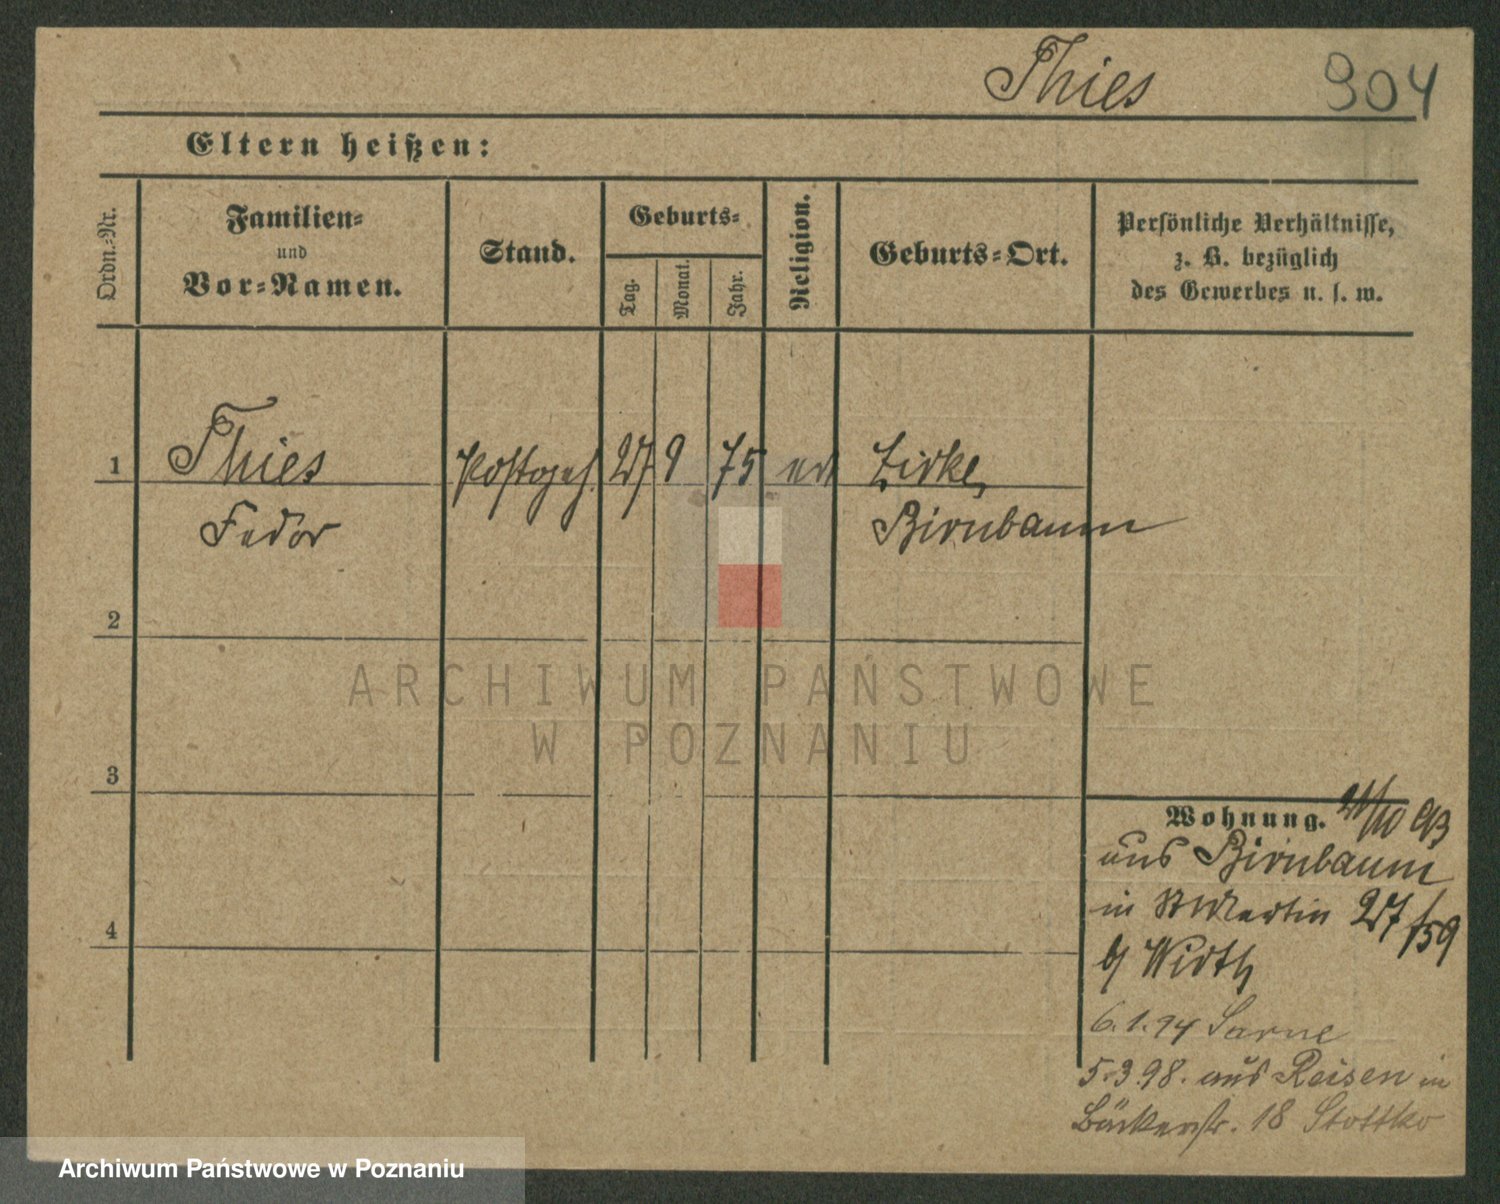 Thies 904
Eltern heißen:
Ordn.-Nr.
Familien-
und
Vor-Namen.
Stand.
Geburts-
Tag.
Monat.
Jahr.
Religion.
Geburts-Ort.
Persönliche Verhältnisse,
z. B. bezüglich
des Gewerbes u. s. w.
1 Thies Postgeh. 27 9 75 ev Zirke,
Fedor Birnbaum
2
ARCHIWUM PAŃSTWOWE
W POZNANIU
3
Wohnung. 21/10 93
aus Birnbaum
in St Martin 27/59
4
b/ Wirth
6.1.94 Sarne
5.3.98. aus Reisen in
Bäckerstr. 18 Stottko
Archiwum Państwowe w Poznaniu